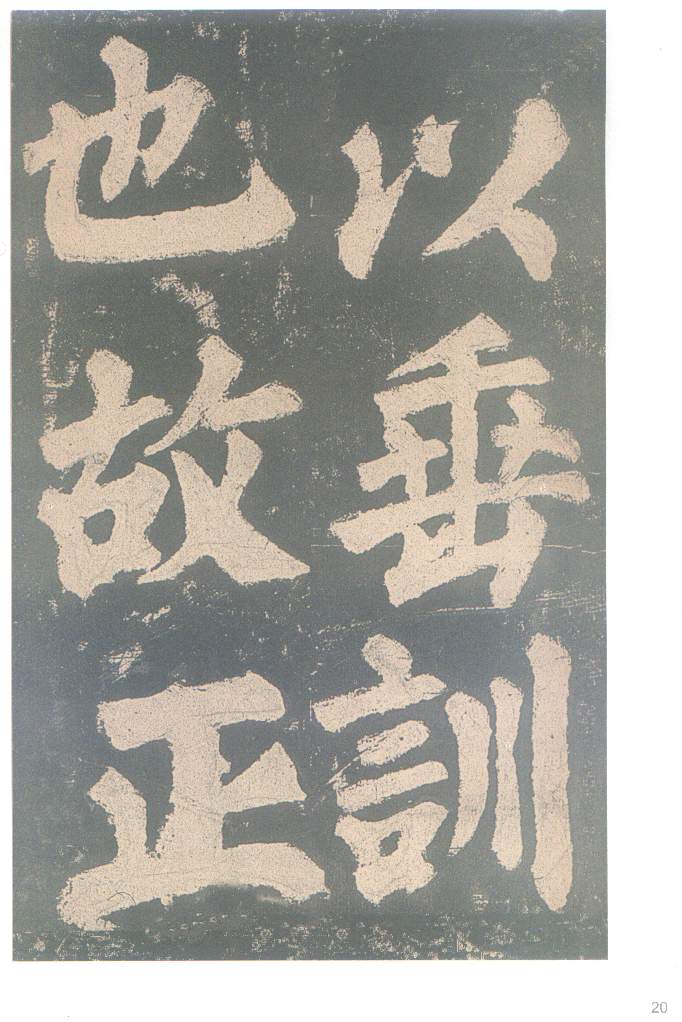 以垂訓
也故正
20